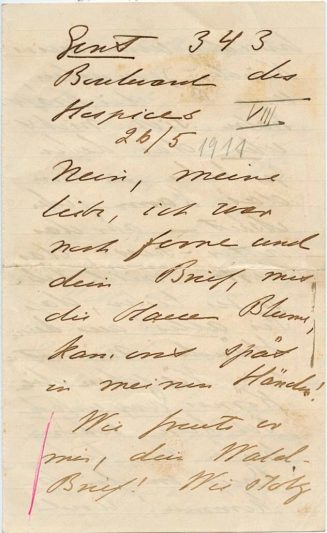 Gent 343
Boulevard des
Hospices VIII
26/5 1911
Nein, meine
liebe, ich war
noch ferne und
dein Brief, mit
die blaue Blume,
kam erst spät
in meinen Hände!
Wie freute er
mir, dein Wald-
Brief! Wie stolz